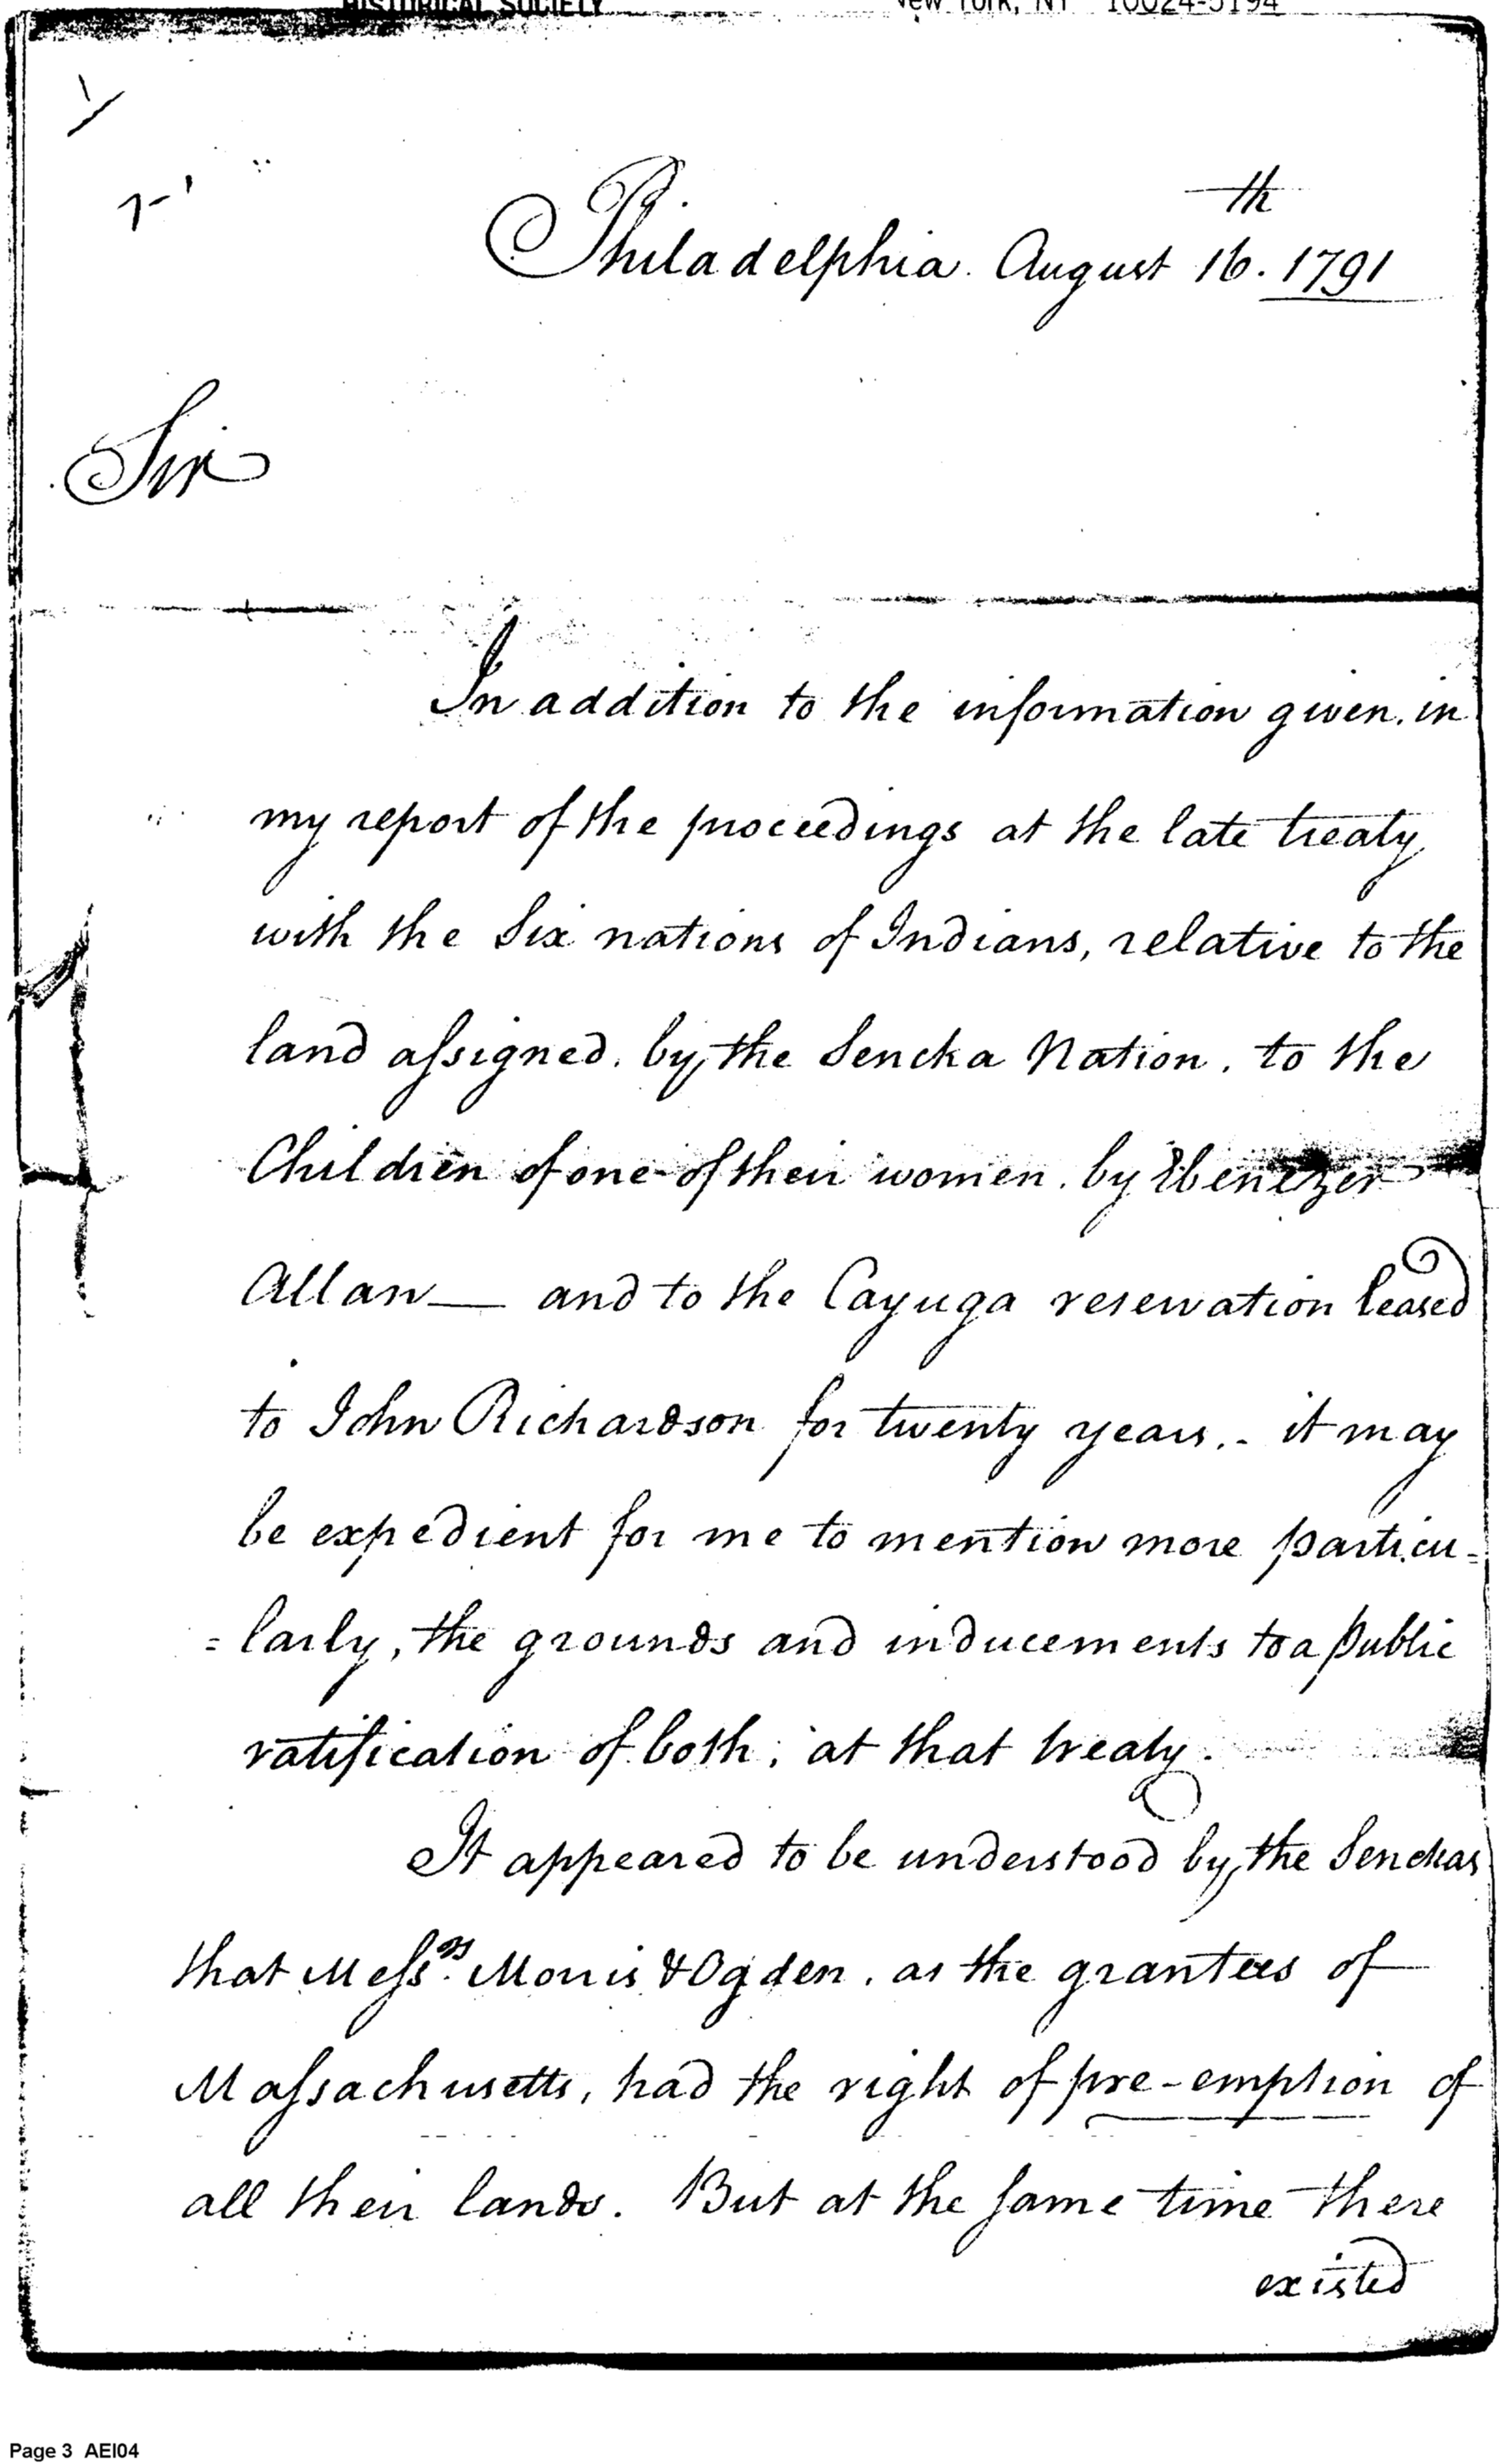 HISTORICAL SOCIETY New York, NY 10024-5194
Philadelphia. August 16.th 1791
Sir
In addition to the information given, in
my report of the proceedings at the late treaty
with the Six nations of Indians, relative to the
land assigned, by the Seneka Nation, to the
Children of one of their women, by Ebenezer
Allan — and to the Cayuga reservation leased
to John Richardson for twenty years, - it may
be expedient for me to mention more particu=
=larly, the grounds and inducements to a public
ratification of both, at that treaty.
It appeared to be understood by the Senekas
that Messrs. Morris & Ogden, as the grantees of
Massachusetts, had the right of pre-emption of
all their lands. But at the same time there
existed
Page 3 AEI04